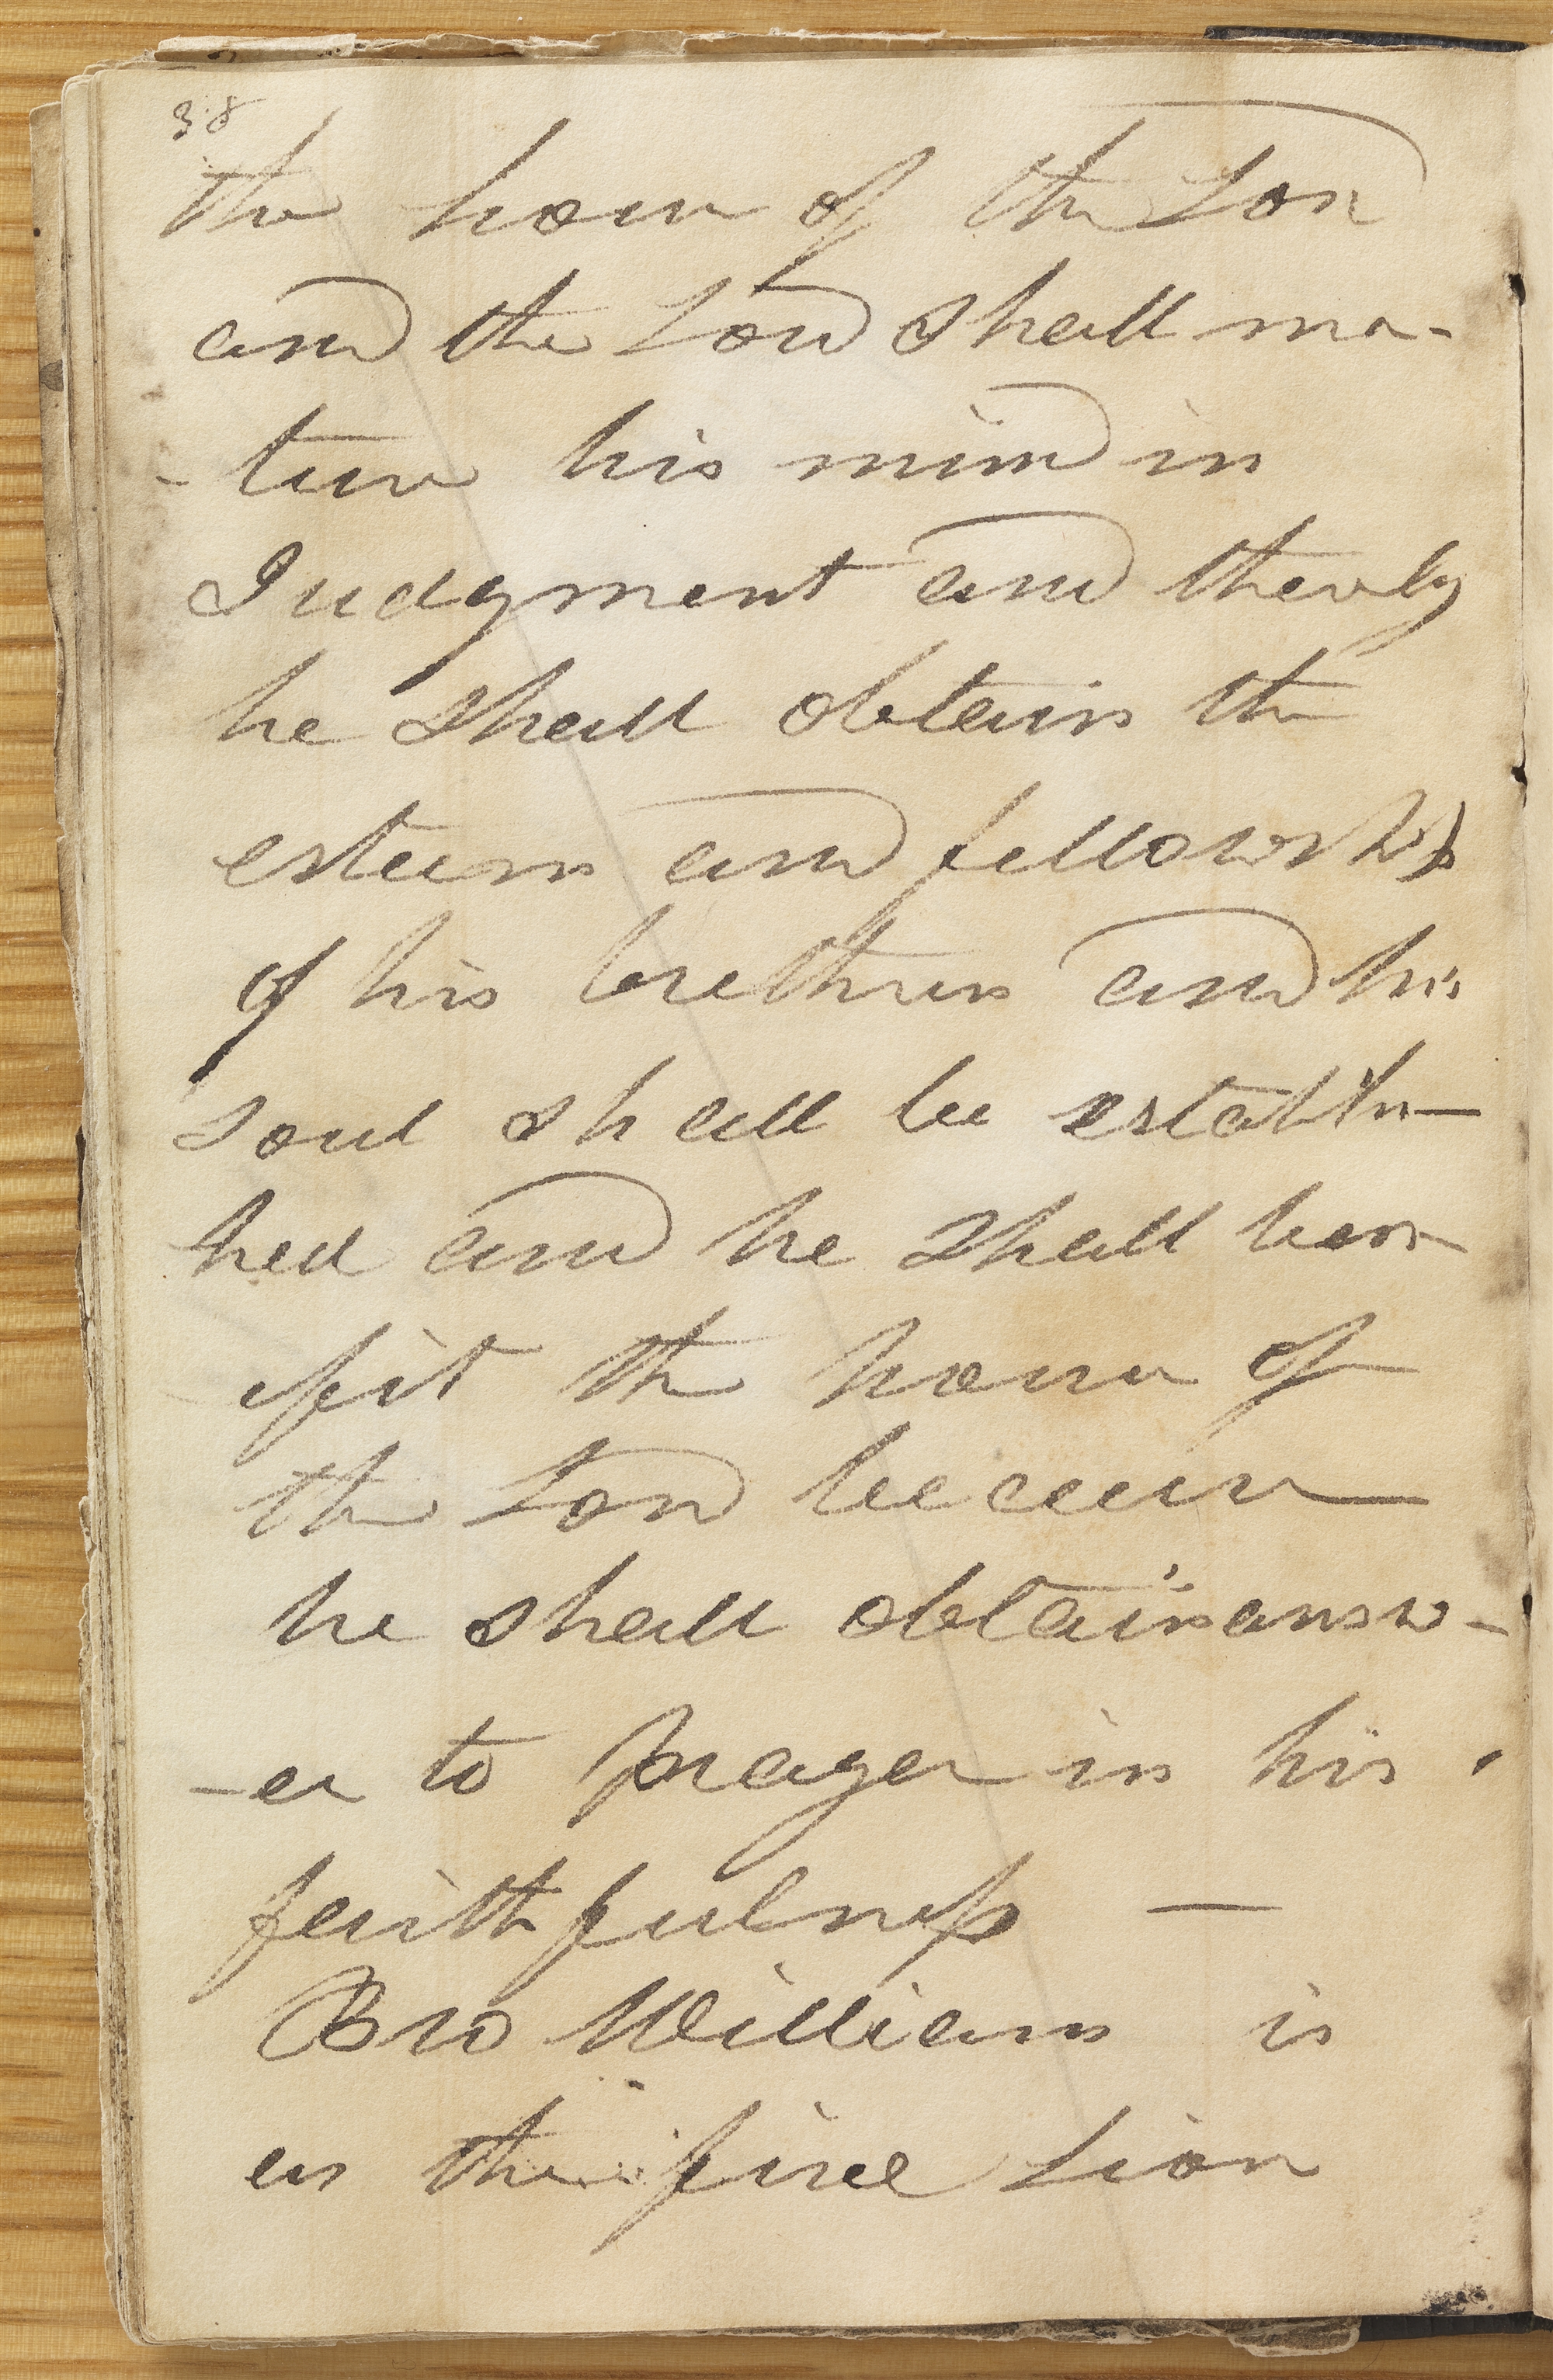 38
the house of the Lord
and the Lord shall ma-
-ture his mind in
Judgment and thereby
he shall obtain the
esteem and fellowship
of his brethren and his
soul shall be establis-
hed and he shall ben-
efit the house of
the Lord because
he shall obtain answ-
-er to prayer in his
faithfulness —
Bro Williams is
as the fierce Lion